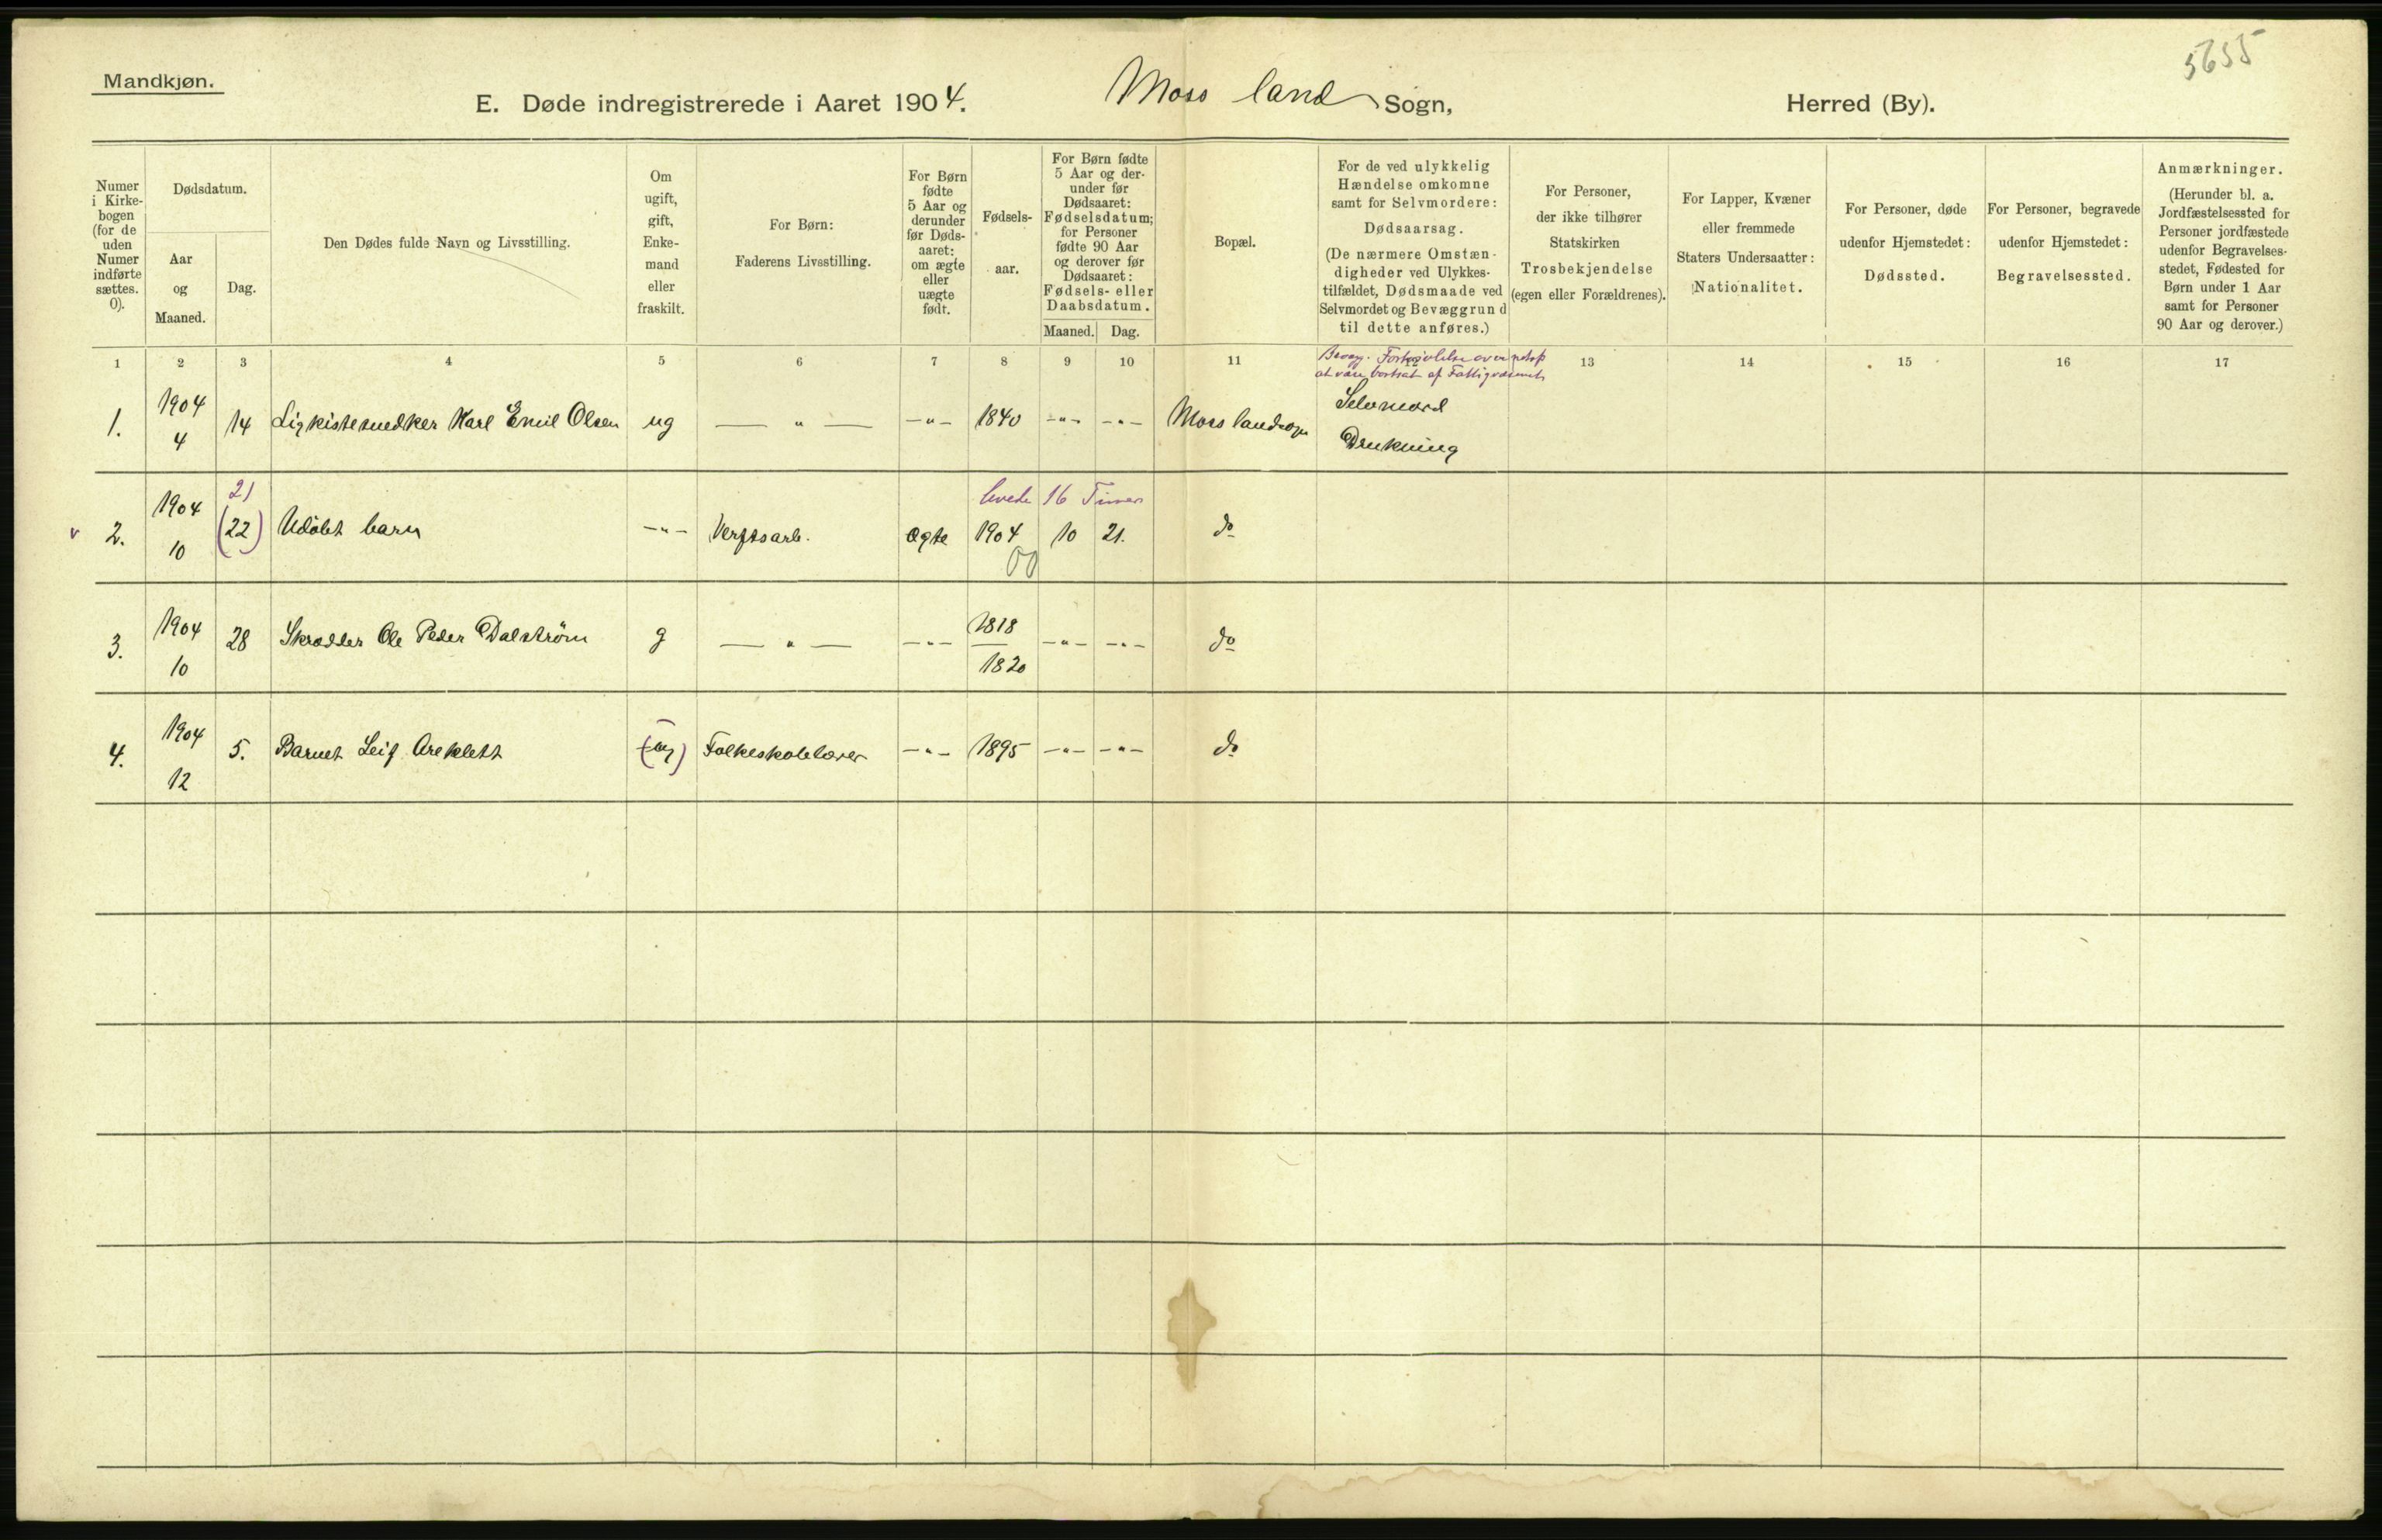 5655
Mandkjøn.
E. Døde indregistrerede i Aaret 1904. Moss land Sogn, Herred (By).
Numer i Kirke-bogen (for de uden Numer indførte sættes. 0).
Dødsdatum.
Aar og Maaned.
Dag.
Den Dødes fulde Navn og Livsstilling.
Om ugift, gift, Enke-mand eller fraskilt.
For Børn:
Faderens Livsstilling.
For Børn fødte 5 Aar og derunder før Døds-aaret: om ægte eller uægte født.
Fødsels-aar.
For Børn fødte 5 Aar og der-under før Dødsaaret: Fødselsdatum; for Personer fødte 90 Aar og derover før Dødsaaret: Fødsels- eller Daabsdatum.
Maaned. Dag.
Bopæl.
For de ved ulykkelig Hændelse omkomne samt for Selvmordere:
Dødsaarsag.
(De nærmere Omstæn-digheder ved Ulykkes-tilfældet, Dødsmaade ved Selvmordet og Bevæggrund til dette anføres.)
For Personer, der ikke tilhører Statskirken
Trosbekjendelse
(egen eller Forældrenes).
For Lapper, Kvæner eller fremmede Staters Undersaatter:
Nationalitet.
For Personer, døde udenfor Hjemstedet:
Dødssted.
For Personer, begravede udenfor Hjemstedet:
Begravelsessted.
Anmærkninger.
(Herunder bl. a. Jordfæstelsessted for Personer jordfæstede udenfor Begravelses-stedet, Fødested for Børn under 1 Aar samt for Personer 90 Aar og derover.)
1 2 3 4 5 6 7 8 9 10 11 13 14 15 16 17
at være bortsat af Fattigvæsenet
1. 1904 4 14 Ligkistesnedker Karl Emil Olsen ug — " — -"- 1840 -"- -"- Moss landsogn Selvmord Drukning
21 levede 16 Timer
v 2. 1904 10 (22) Udøbt barn -"- Verftsarb. ægte 1904 10 21. do
00
3. 1904 10 28 Skrædder Ole Peder Dalstrøm g — " — -"- 1818 1820 -"- -"- do
4. 1904 12 5. Barnet Leif Areklett (ug) Folkeskolelærer -"- 1895 -"- -"- do